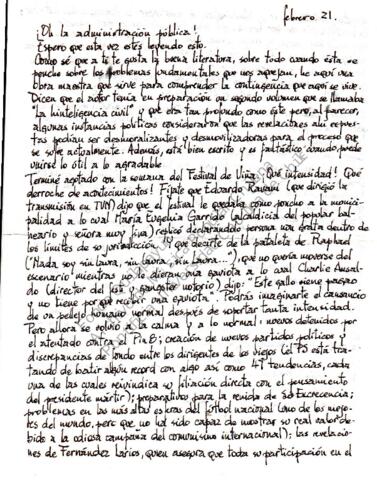 febrero 21.
¡Oh la administración pública!
Espero que esta vez estés leyendo esto.
Como sé que a ti te gusta la buena literatura, sobre todo cuando ésta se
poncho sobre los problemas fundamentales que nos aquejan, he aquí una
obra maestra que sirve para comprender la contingencia que aquí se vive.
Dicen que el autor tenía en preparación un segundo volumen que se llamaba
"La hinteligencia civil" y que era tan profundo como éste pero, al parecer,
algunas instancias políticas consideraron que las revelaciones allí expues-
tas podían ser desmoralizantes y desmovilizadoras para el proceso que
se vive actualmente. Además, está bien escrito y es fantástico cuando puede
unirse lo útil a lo agradable.
Terminé agotado con la semana del Festival de Viña. Qué intensidad! Qué
derroche de acontecimientos! Fíjate que Edoardo Ravani (que dirigió la
transmisión en TVN) dijo que el festival le quedaba como poncho a la munici-
palidad a lo cual María Eugenia Garrido (alcaldicia del popular bal-
neario y señora muy fina) replicó declarándolo persona non grata dentro de
los límites de su jurisdicción. Y qué decirte de la pataleta de Raphael
("Nada, soy sin Laura, sin Laura, sin Laura..."), que no quería moverse del
escenario mientras no le dieran una gaviota a lo cual Charlie Ausal-
do (director del fest. y gangster notorio) dijo: "Este gallo viene pagado
y no tiene por qué recibir una gaviota". Podrás imaginarte el cansancio
de un pellejo humano normal después de soportar tanta intensidad.
Pero ahora se volvió a la calma y a lo normal: nuevos detenidos por
el atentado contra Pin 8; creación de nuevos partidos políticos y
discrepancias de fondo entre los dirigentes de los viejos (el PS está tra-
tando de batir algún record con algo así como 41 tendencias, cada
una de las cuales reivindica su filiación directa con el pensamiento
del presidente mártir); preparativos para la venida de Su Excrecencia;
problemas en las más altas esferas del fútbol nacional (uno de los mejo-
res del mundo, pero que no ha sido capaz de mostrar su real valor de-
bido a la odiosa campaña del comunismo internacional); las revelacio-
nes de Fernández Larios, quien asegura que toda su participación en el